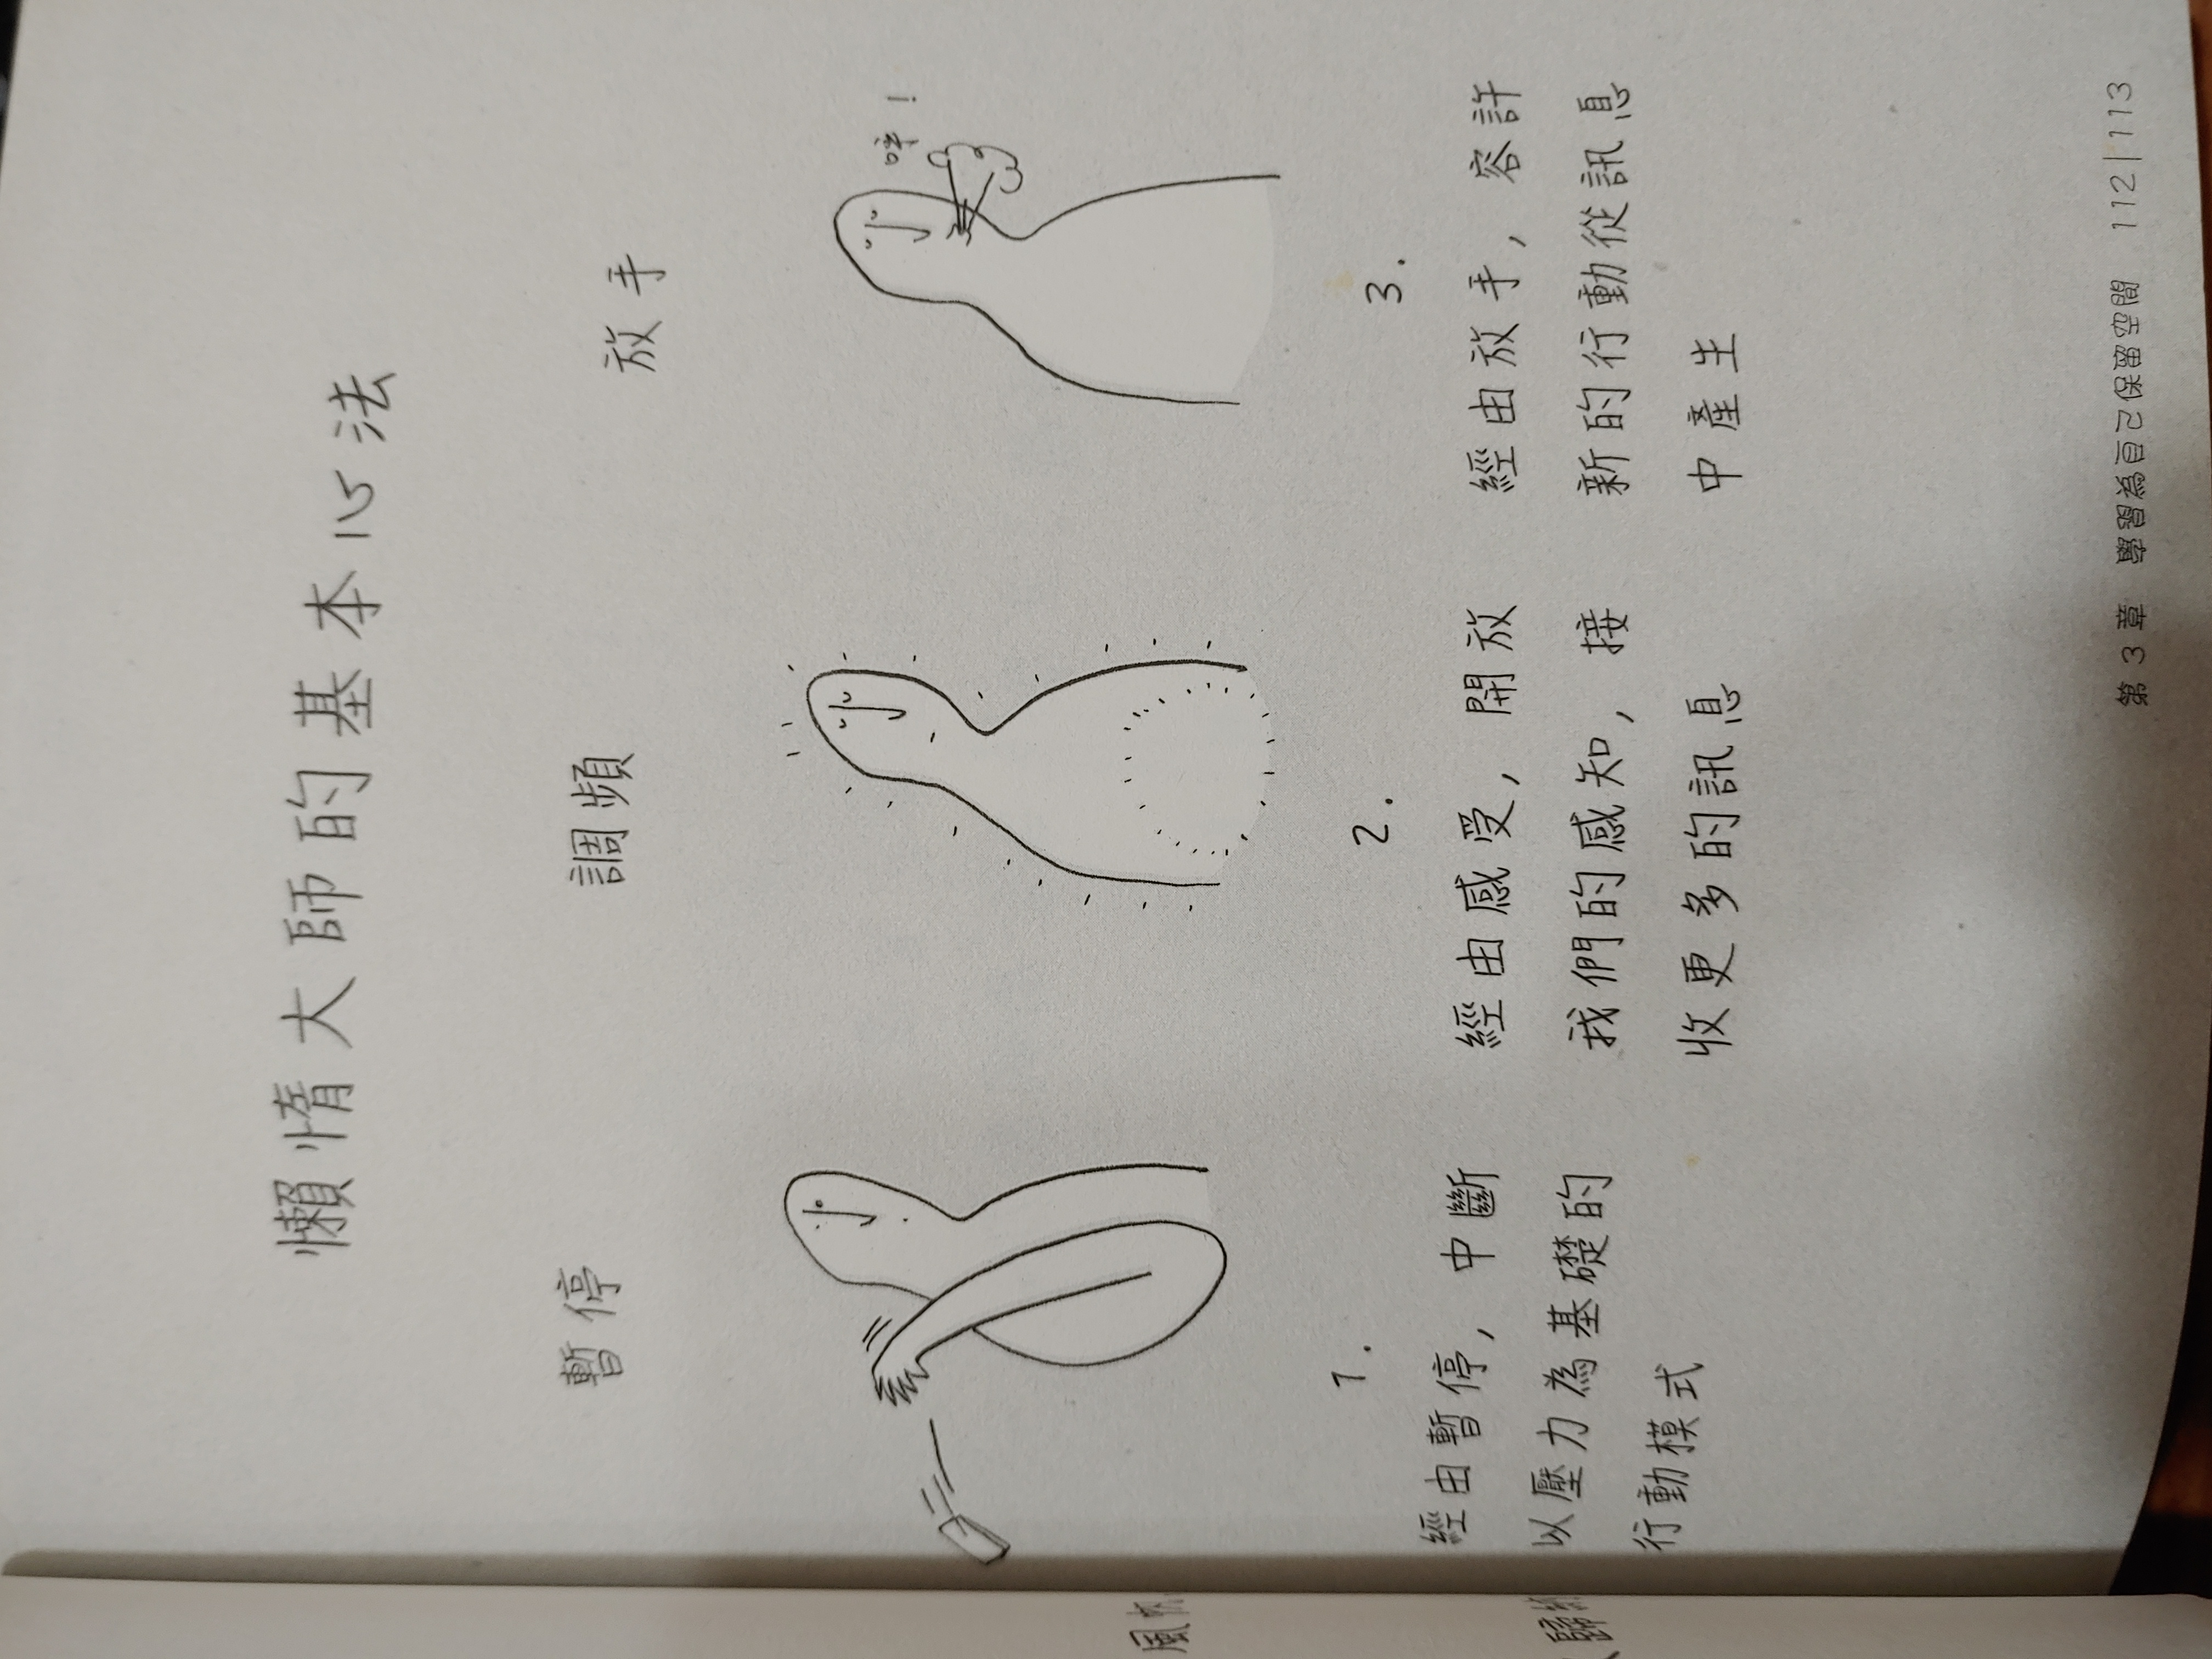 懶惰大師的基本心法
暫停
調頻
放手
呼！
1.
經由暫停，中斷
以壓力為基礎的
行動模式
2.
經由感受，開放
我們的感知，接
收更多的訊息
3.
經由放手，容許
新的行動從訊息
中產生
風
歸
第3章 學習為自己保留空間 112|113